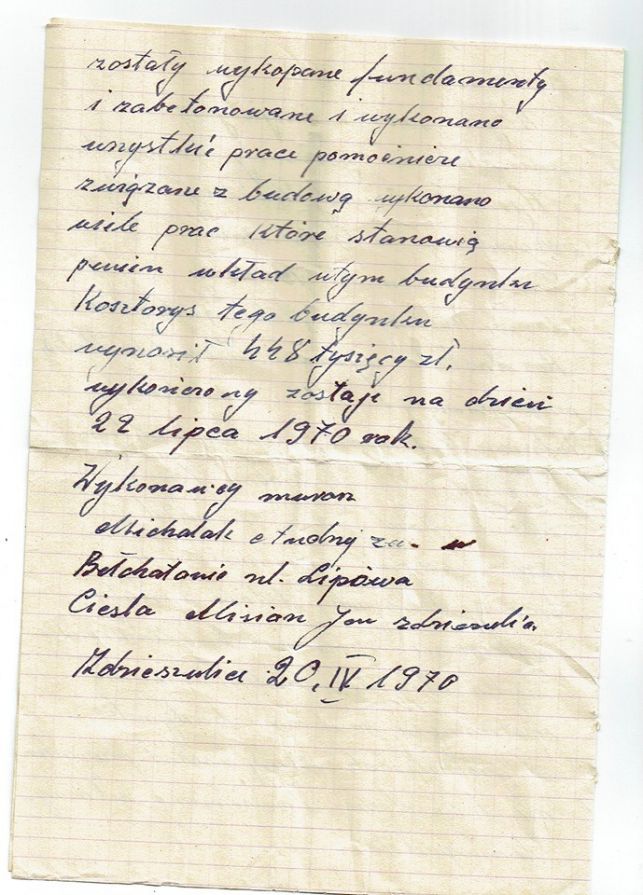 zostały wykopane fundamenty
i zabetonowane i wykonano
wszystkie prace pomocnicze
związane z budową wykonano
wiele prac które stanowią
pewien wkład wtym budynku
Kosztorys tego budynku
wynosił 448 tysięcy zł.
wykończony zostaje na dzień
22 lipca 1970 rok.
Wykonawcy murarz
Michalak Andrzej zam. w
Bełchatowie ul. Lipowa
Ciesla Misian Jan
Zdzieszulice 20. IV 1970